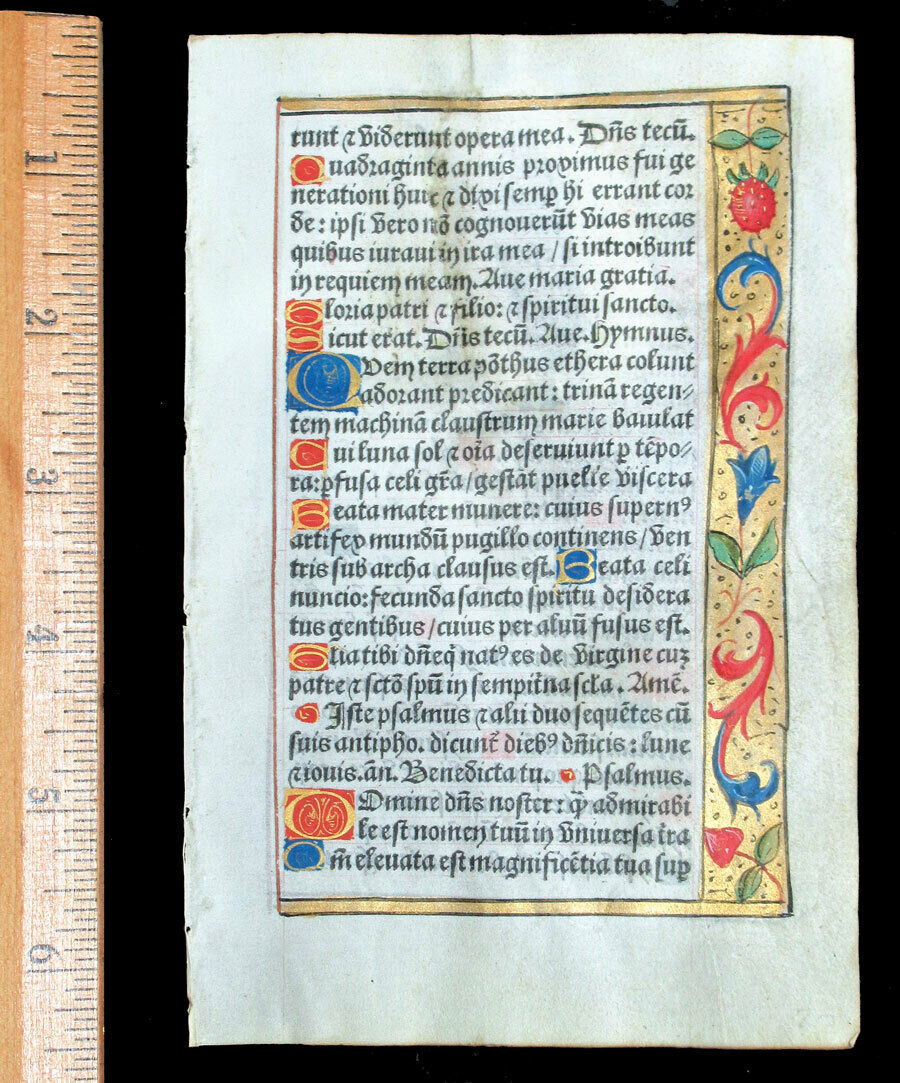 runt ⁊ viderunt opera mea. Dn̄s tecū.
Quadraginta annis proximus fui ge
nerationi huic ⁊ dixi semꝑ hi errant cor
de: ipsi vero nō cognoverūt vias meas
quibus iuraui in ira mea / si introibunt
in requiem meam. Aue maria gratia.
Gloria patri ⁊ filio: ⁊ spiritui sancto.
Sicut erat. Dn̄s tecū. Aue. Hymnus.
Quem terra pōthus ethera colunt
adorant predicant: trinā regen⸗
tem machinā claustrum marie baiulat
Cui luna sol ⁊ oīa deseruiunt ꝑ tēpo⸗
ra: ꝑfusa celi grā / gestāt puelle viscera
Beata mater munere: cuius supernꝰ
artifex mundū pugillo continens / ven
tris sub archa clausus est. Beata celi
nuncio: fecunda sancto spiritu desidera
tus gentibus / cuius per aluū fusus est.
Glia tibi dn̄e q̄ natꝰ es de virgine cuz
patre ⁊ sctō spū in sempit̄na scl̄a. Amē.
Iste psalmus ⁊ alii duo sequētes cū
suis antipho. dicunt̄ diebꝰ dn̄icis: lune
⁊ iouis. an̄. Benedicta tu. Psalmus.
Domine dn̄s noster: qꝫ admirabi
le est nomen tuū in vniuersa t̄ra
Qm̄ eleuata est magnificētia tua suꝑ
1
2
3
4
5
6